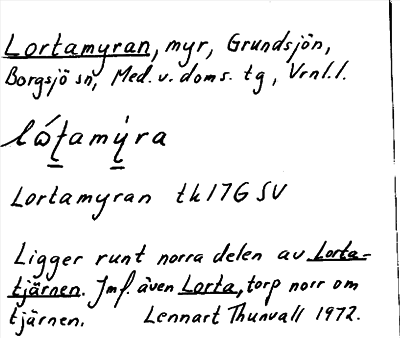 Lortamyran, myr, Grundsjön,
Borgsjö sn, Med. v. doms. tg, Vrnl. l.
lóṱamýra
Lortamyran tk 17G SV
Ligger runt norra delen av Lorta-
tjärnen. Jmf. även Lorta, torp norr om
tjärnen. Lennart Thunvall 1972.